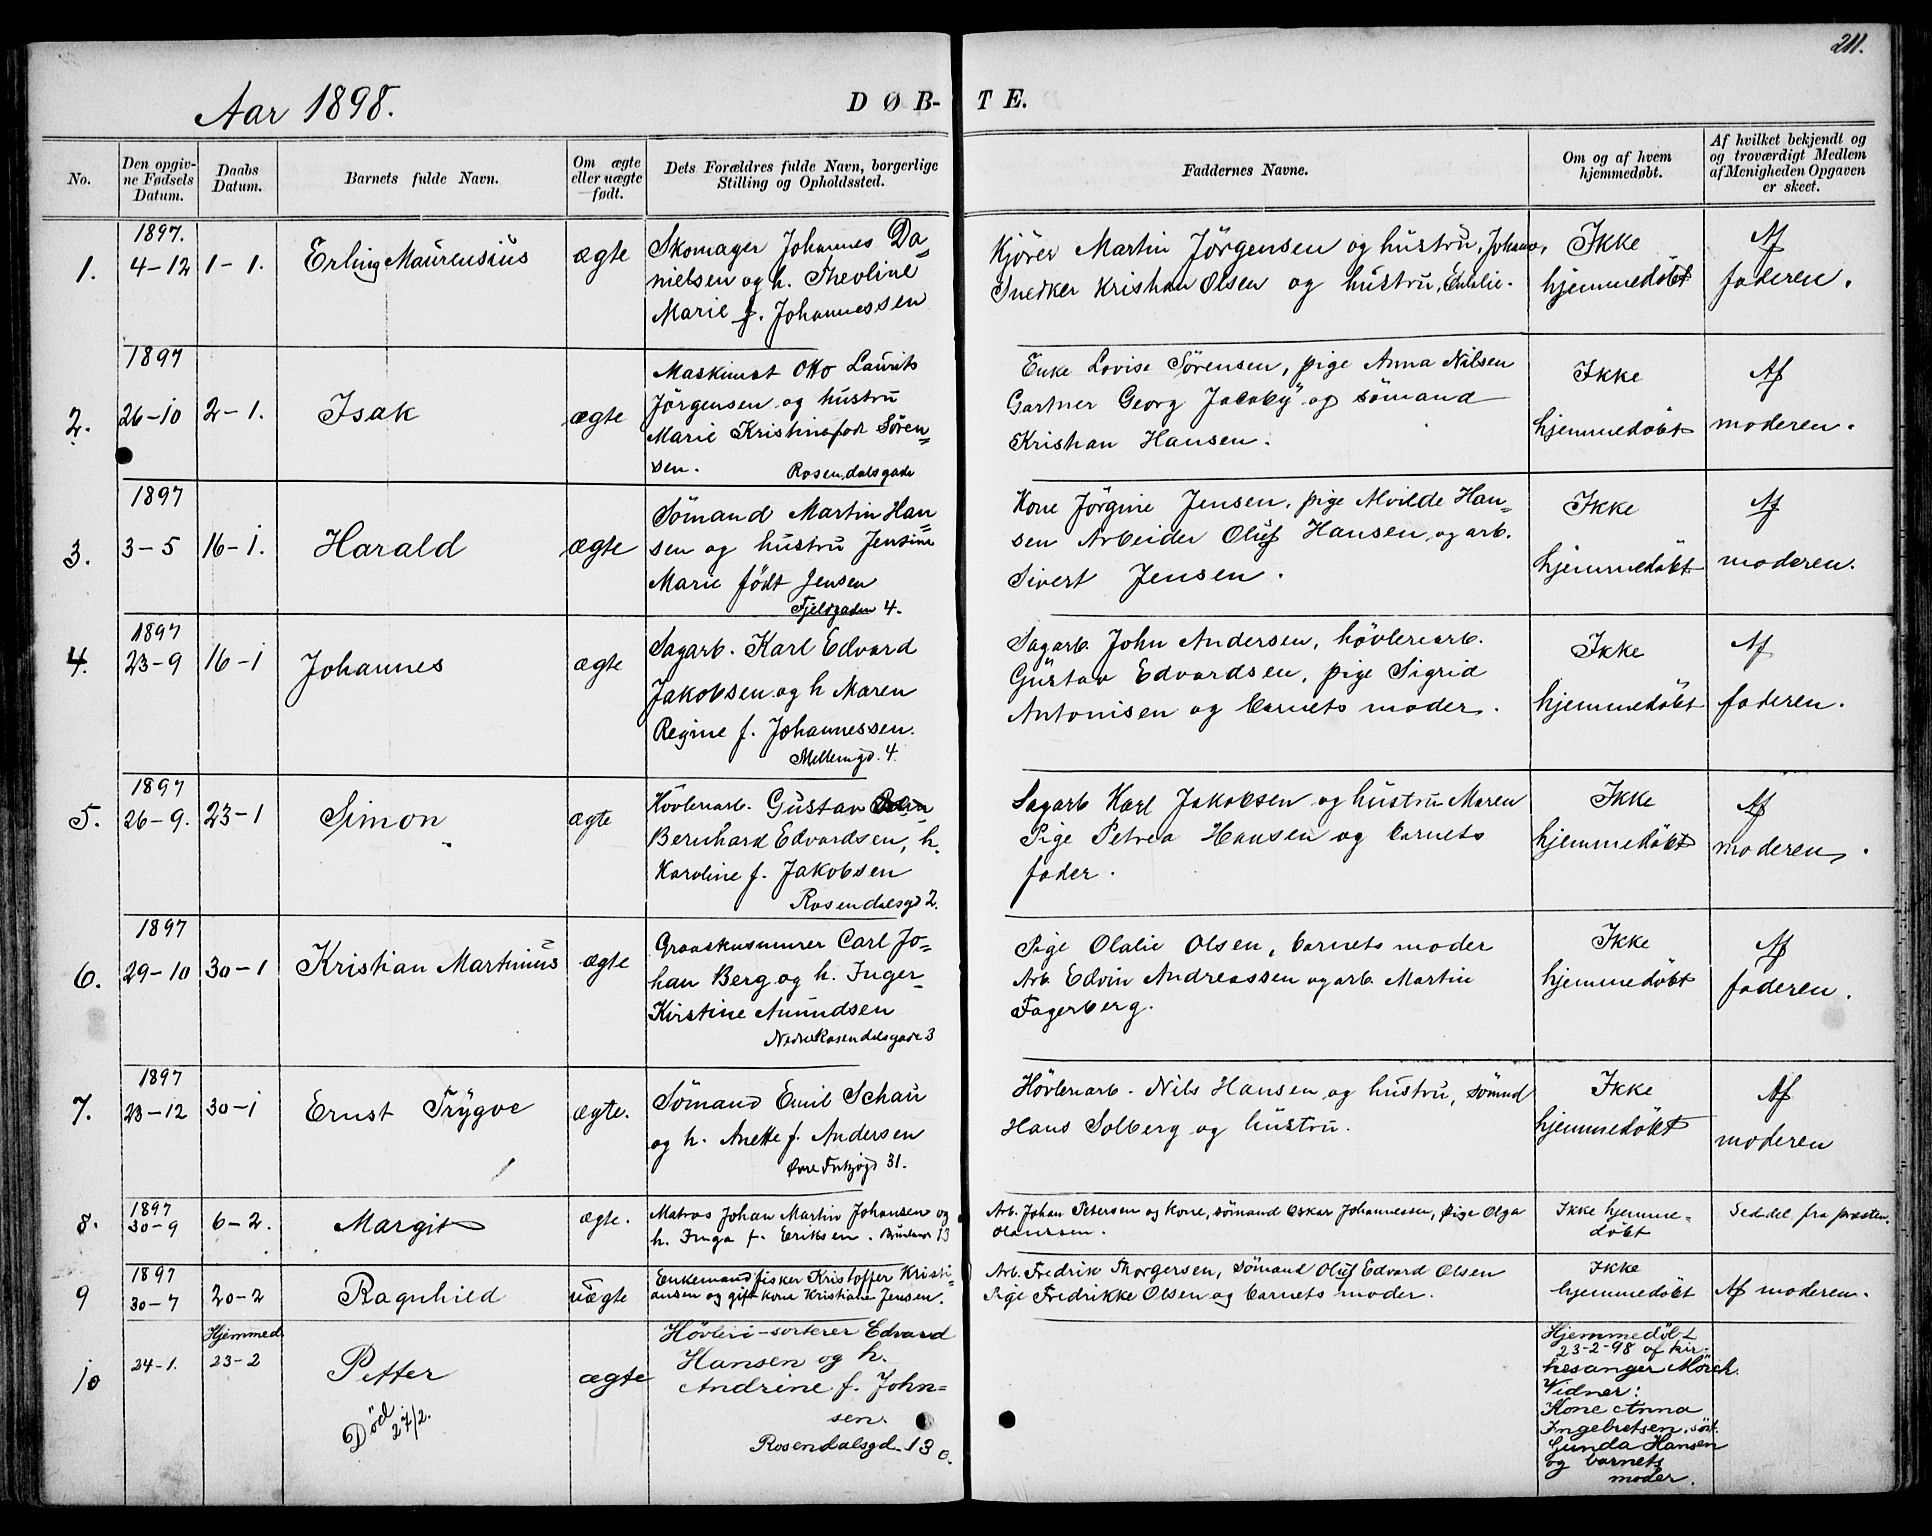 211.
Aar 1898.
DØB-TE.
No.
Den opgiv-
ne Fødsels
Datum.
Daabs
Datum.
Barnets fulde Navn.
Om ægte
eller uægte
født.
Dets Forældres fulde Navn, borgerlige
Stilling og Opholdssted.
Faddernes Navne.
Om og af hvem
hjemmedøbt.
Af hvilket bekjendt og
og troværdigt Medlem
af Menigheden Opgaven
er skeet.
1.
1897.
4-12
1-1.
Erling Maurensius
ægte
Skomager Johannes Da=
nielsen og h. Theoline
Marie f. Johannessen
Kjører Martin Jörgensen og hustru, Johanna,
Snedker Kristian Olsen og hustru, Eulalie.
Ikke
hjemmedøbt
Af
faderen.
2.
1897
26-10
2-1.
Isak
ægte
Maskinist Otto Laurits
Jörgensen og hustru
Marie Kristine född Sören=
sen.
Rosendalsgade
Enke Lovise Sørensen, pige Anna Nilsen
Gartner Georg Jacoby og sömand
Kristian Hansen.
Ikke
hjemmedøbt
Af
moderen.
3.
1897
3-5
16-1.
Harald
ægte
Sömand Martin Han=
sen og hustru Jensine
Marie födt Jensen
Fjeldgaden 4.
Kone Jörgine Jensen, pige Alvilde Han=
sen Arbeider Oluf Hansen og arb.
Sivert Jensen.
Ikke
hjemmedøbt
Af
moderen.
4.
1897
23-9
16-1
Johannes
ægte
Sagarb. Karl Edvard
Jakobsen og h Maren
Regine f. Johannessen.
Mellemgd. 4.
Sagarb. John Andersen, hövleriarb.
Gustav Edvardsen, pige Sigrid
Antonisen og barnets moder.
Ikke
hjemmedøbt
Af
faderen.
5.
1897
26-9.
23-1
Simon
ægte
Hövleriarb. Gustav
Bernhard Edvardsen, h.
Karoline f. Jakobsen
Rosendalsgd 2.
Sagarb Karl Jakobsen og hustru Maren
Pige Petrea Hansen og barnets
fader.
Ikke
hjemmedøbt
Af
moderen.
6.
1897
29-10
30-1
Kristian Martinius
ægte
Graastensmurer Carl Jo=
han Berg og h. Inger-
Kirstine Amundsen
Nedre Rosendalsgade 3
Pige Olalie Olsen, barnets moder
Arb. Edvin Andreassen og arb. Martin
Fagerberg.
Ikke
hjemmedøbt
Af
faderen.
7.
1897
23-12
30-1
Ernst Trygve
ægte.
Sömand Emil Schau
og h. Anette f. Andersen
31.
Hövleriarb. Nils Hansen og hustru, sömand
Hans Solberg og hustru.
Ikke
hjemmedøbt
Af
moderen
8.
1897
30-9
6-2.
Margit
ægte.
Matros Johan Martin Johansen og
h. Inga f. Eriksen. 13
Arb. Johan Petersen og kone, sömand Oskar Johannessen, pige Olga
Olaussen.
Ikke hjemme-
døbt
Seddel fra præsten.
9
1897
30-7
20-2
Ragnhild
uægte
Enkemand fisker Kristoffer Kristi-
ansen og gift kone Kristiane Jensen.
Arb. Fredrik Thorgersen, sömand Oluf Edvard Olsen
Pige Fredrikke Olsen og barnets moder.
Ikke
hjemmedøbt
Af moderen.
10
24-1.
Hjemmed
23-2
Petter
Död
27/2.
ægte
Hövleri-sorterer Edvard
Hansen og h.
Andrine f. John=
sen.
Rosendalsgd. 13 c.
Hjemmedøbt
23-2-98 af kir-
kesanger Mörch.
Vidner:
Kone Anna
Ingebretsen,
Gunda Hansen
og barnets
moder.